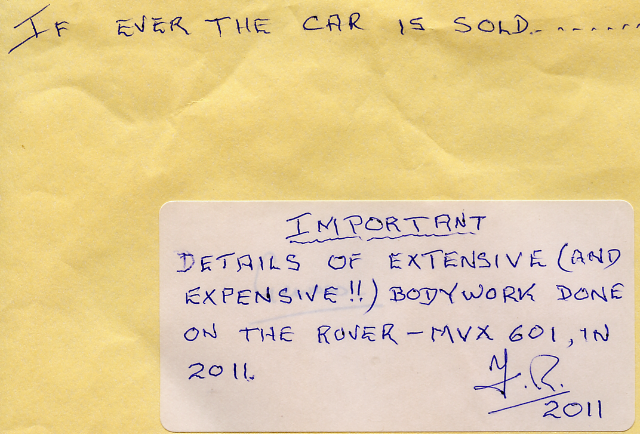 IF EVER THE CAR IS SOLD.........
IMPORTANT
DETAILS OF EXTENSIVE (AND
EXPENSIVE!!) BODYWORK DONE
ON THE ROVER – MVX 601, IN
2011.
F.R.
2011